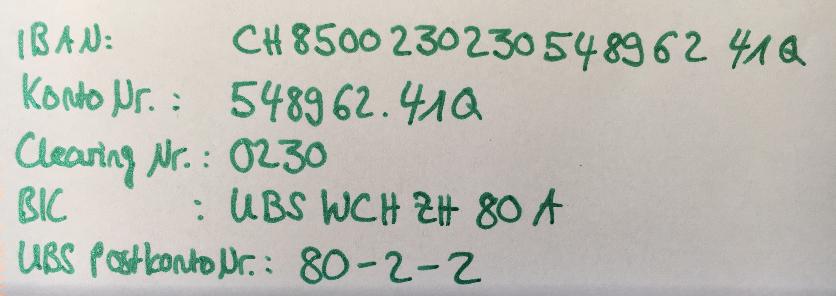 IBAN: CH8500230230548962 41Q
Konto Nr.: 548962.41Q
Clearing Nr.: 0230
BIC : UBS WCH ZH 80 A
UBS Postkonto Nr.: 80-2-2